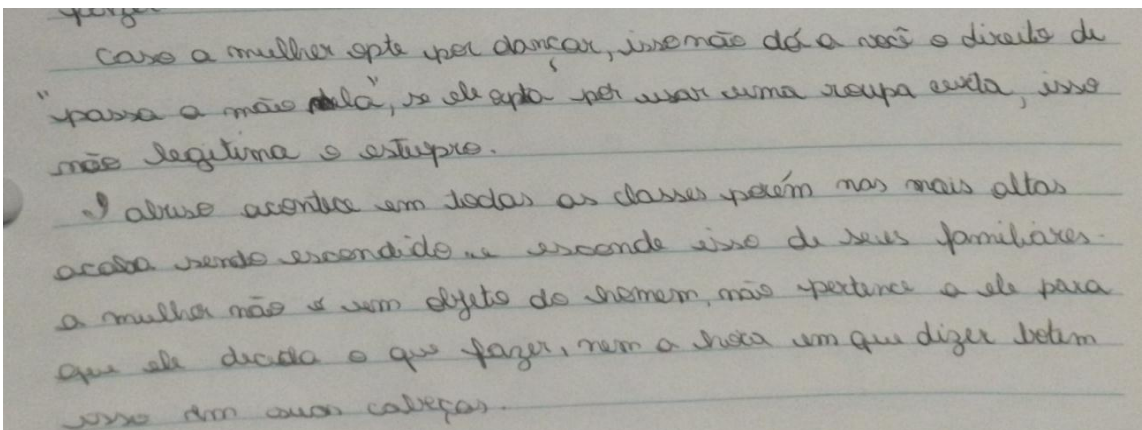 Caso a mulher opte por dançar, isso não dá a você o direito de
"passa a mão nela", se ela opta por usar uma roupa curta, isso
não legitima o estupro.
O abuso acontece em todas as classes porém nas mais altas
acaba sendo escondido, e esconde isso de seus familiares.
a mulher não é um objeto do homem, não pertence a ele para
que ele decida o que fazer, nem a hora em que dizer botem
isso em suas cabeças.